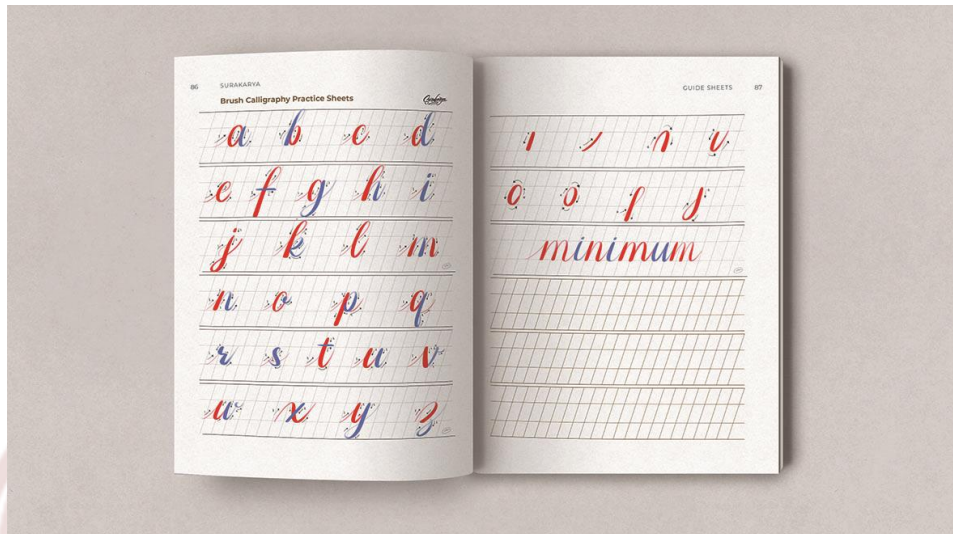 86 SURAKARYA
Brush Calligraphy Practice Sheets
a b c d
e f g h i
j k l m
n o p q
r s t u v
w x y z
GUIDE SHEETS 87
minimum